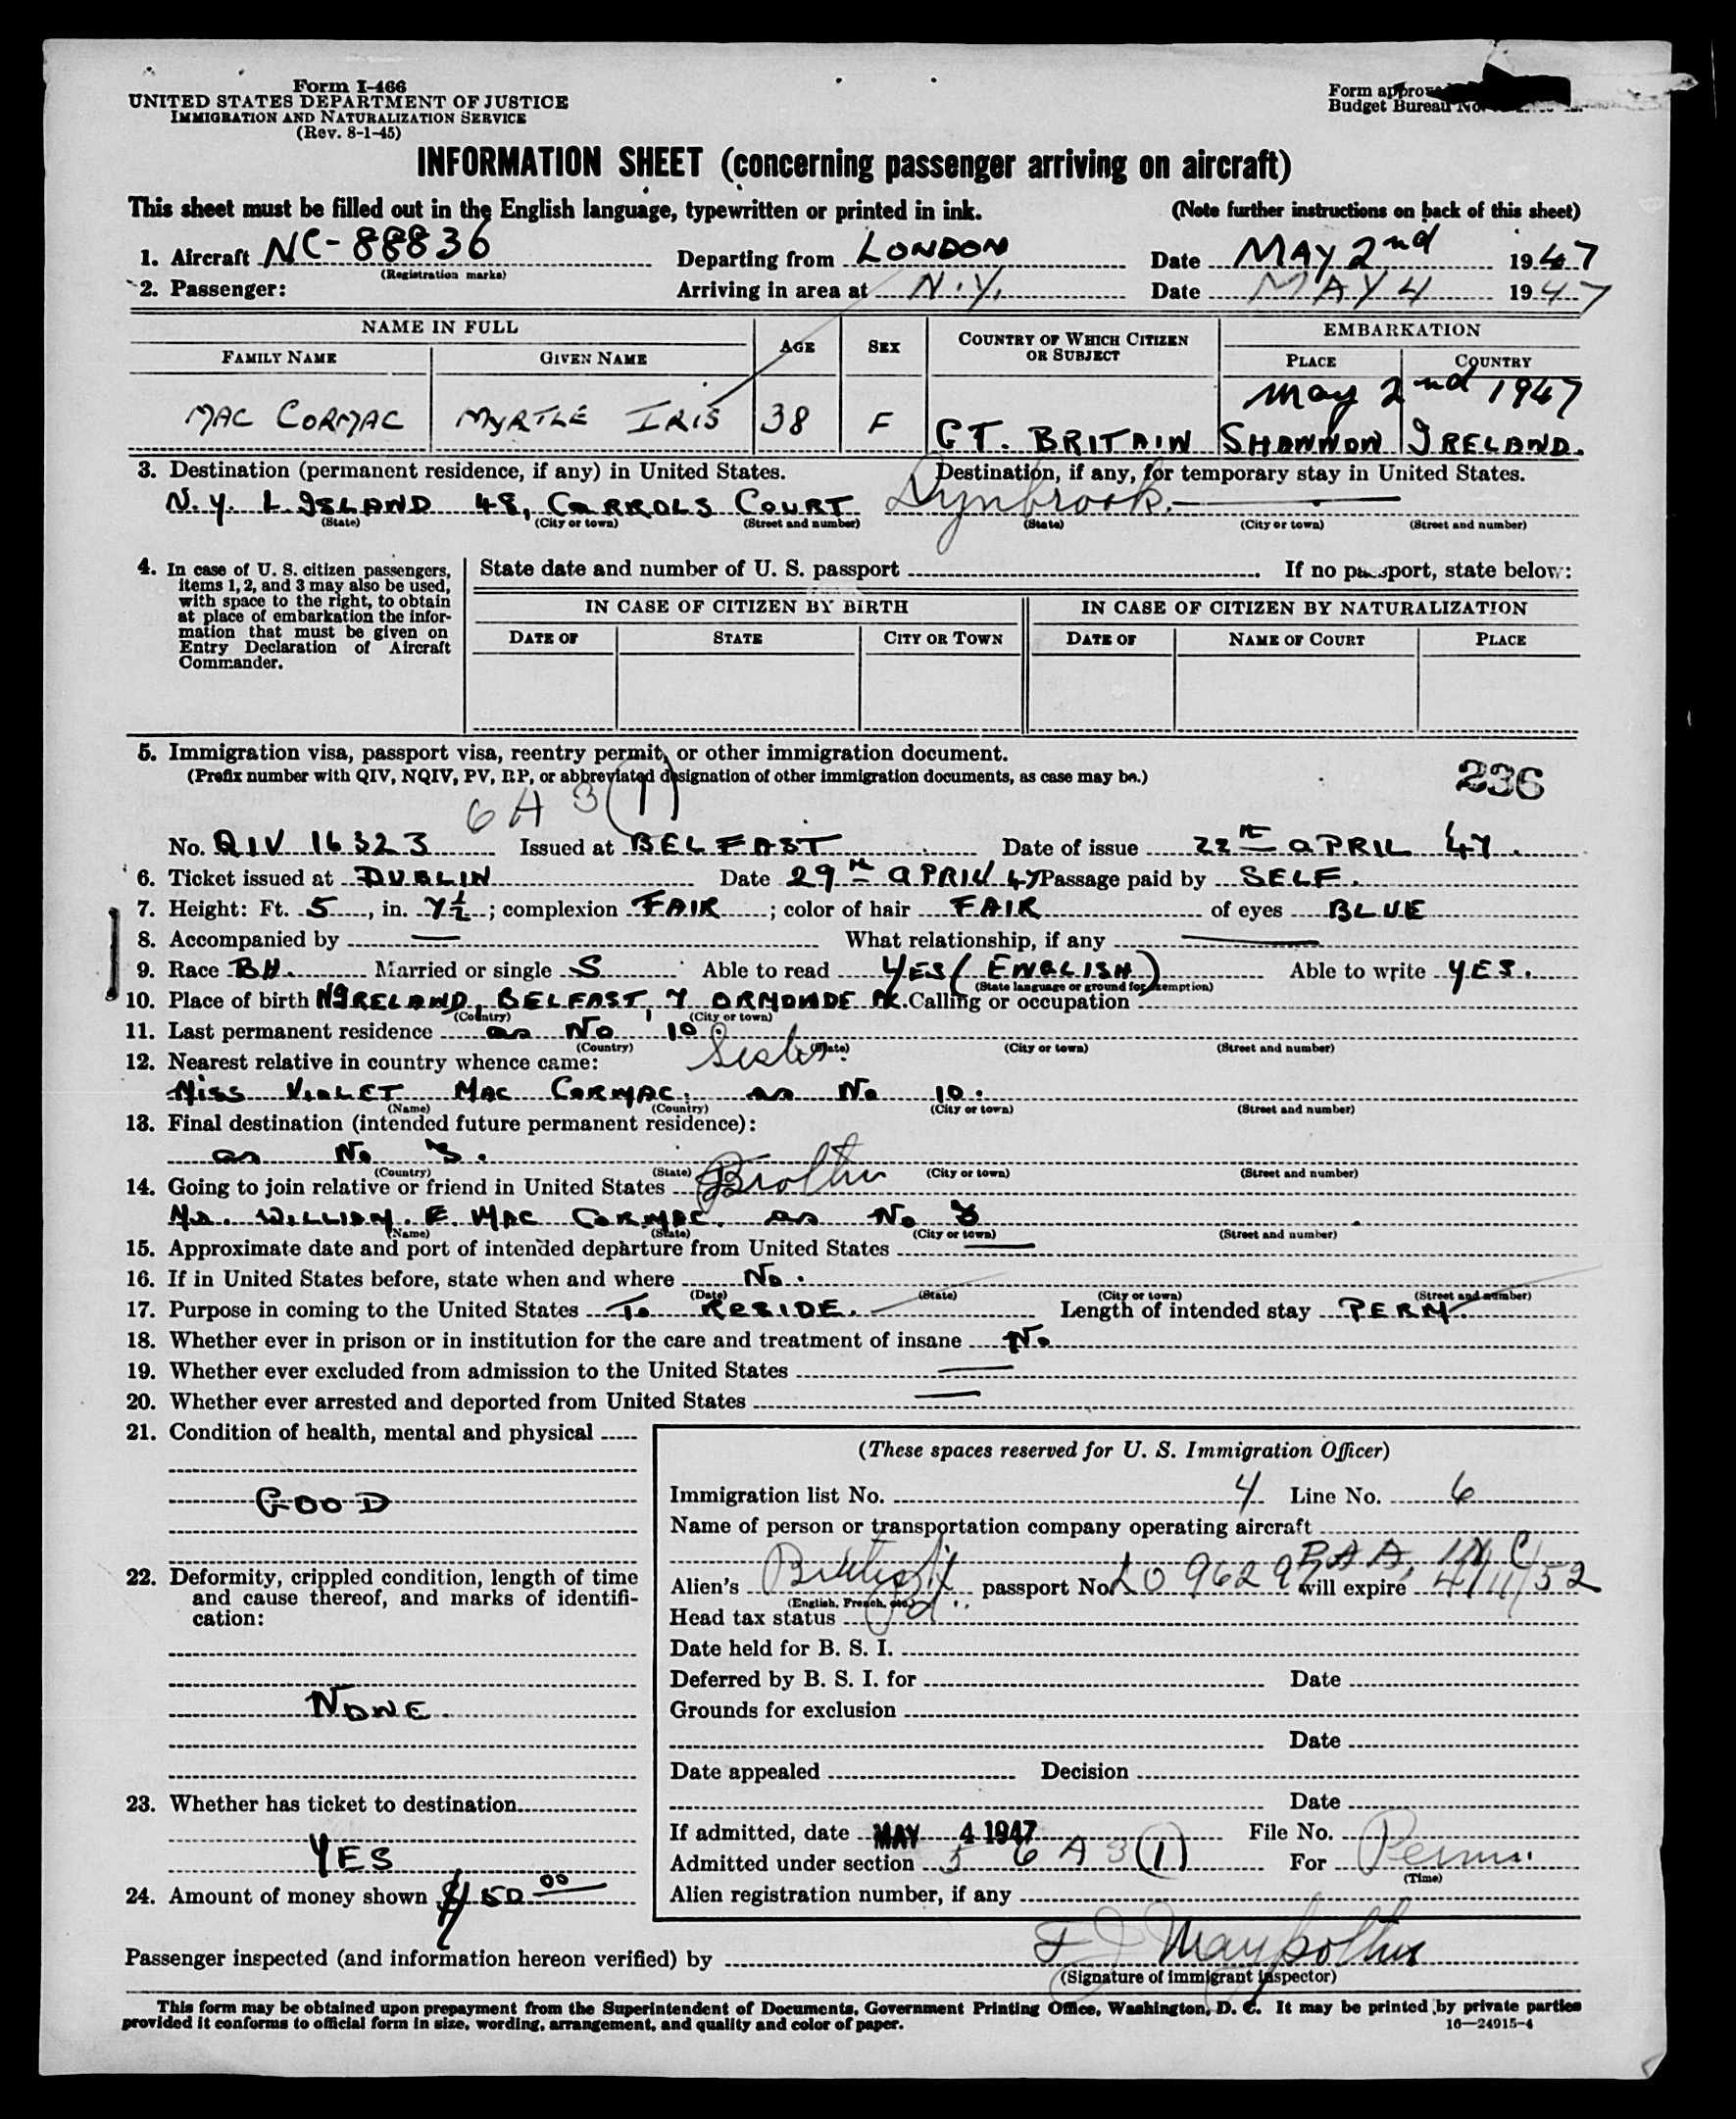 Form I-466
UNITED STATES DEPARTMENT OF JUSTICE
IMMIGRATION AND NATURALIZATION SERVICE
(Rev. 8-1-45)
Form approved
Budget Bureau No.
INFORMATION SHEET (concerning passenger arriving on aircraft)
This sheet must be filled out in the English language, typewritten or printed in ink. (Note further instructions on back of this sheet)
1. Aircraft NC-88836 Departing from LONDON Date MAY 2nd 1947
(Registration marks)
2. Passenger: Arriving in area at N.Y. Date MAY 4 1947
NAME IN FULL AGE SEX COUNTRY OF WHICH CITIZEN OR SUBJECT EMBARKATION
FAMILY NAME GIVEN NAME PLACE COUNTRY
May 2nd 1947
MAC CORMAC MYRTLE IRIS 38 F GT. BRITAIN SHANNON IRELAND.
3. Destination (permanent residence, if any) in United States. Destination, if any, for temporary stay in United States.
N.Y. L. ISLAND 48, CARROLS COURT Lynbrook.
(State) (City or town) (Street and number) (State) (City or town) (Street and number)
4. In case of U. S. citizen passengers, items 1, 2, and 3 may also be used, with space to the right, to obtain at place of embarkation the information that must be given on Entry Declaration of Aircraft Commander.
State date and number of U. S. passport If no passport, state below:
IN CASE OF CITIZEN BY BIRTH IN CASE OF CITIZEN BY NATURALIZATION
DATE OF STATE CITY OR TOWN DATE OF NAME OF COURT PLACE
5. Immigration visa, passport visa, reentry permit, or other immigration document.
(Prefix number with QIV, NQIV, PV, RP, or abbreviated designation of other immigration documents, as case may be.)
236
6 A 3 (1)
No. QIV 16323 Issued at BELFAST Date of issue 22nd APRIL 47.
6. Ticket issued at DUBLIN Date 29th APRIL 47 Passage paid by SELF.
7. Height: Ft. 5, in. 7½; complexion FAIR; color of hair FAIR of eyes BLUE
8. Accompanied by — What relationship, if any —
9. Race BH. Married or single S Able to read YES (ENGLISH) Able to write YES.
(State language or ground for exemption)
10. Place of birth N IRELAND, BELFAST, 7 ORMONDE PK. Calling or occupation
(Country) (City or town)
11. Last permanent residence as No 10.
(Country) (State) (City or town) (Street and number)
12. Nearest relative in country whence came: Sister.
MISS VIOLET MAC CORMAC. as No 10.
(Name) (Country) (City or town) (Street and number)
13. Final destination (intended future permanent residence):
as No 3.
(Country) (State) (City or town) (Street and number)
14. Going to join relative or friend in United States Brother
Mr. WILLIAM. E. MAC CORMAC. as No 3
(Name) (State) (City or town) (Street and number)
15. Approximate date and port of intended departure from United States —
16. If in United States before, state when and where No.
(Date) (State) (City or town) (Street and number)
17. Purpose in coming to the United States To RESIDE. Length of intended stay PERM.
18. Whether ever in prison or in institution for the care and treatment of insane No
19. Whether ever excluded from admission to the United States —
20. Whether ever arrested and deported from United States —
21. Condition of health, mental and physical
GOOD
22. Deformity, crippled condition, length of time and cause thereof, and marks of identification:
NONE.
23. Whether has ticket to destination
YES
24. Amount of money shown $150 00
(These spaces reserved for U. S. Immigration Officer)
Immigration list No. 4 Line No. 6
Name of person or transportation company operating aircraft
PAA, INC
Alien's British passport No. L0 96297 will expire 4/11/52
(English, French, etc.)
Head tax status
Date held for B. S. I.
Deferred by B. S. I. for Date
Grounds for exclusion
Date
Date appealed Decision
Date
If admitted, date MAY 4 1947 File No.
Admitted under section 5 6 A 3 (1) For Perm.
(Time)
Alien registration number, if any
Passenger inspected (and information hereon verified) by F J
(Signature of immigrant inspector)
This form may be obtained upon prepayment from the Superintendent of Documents, Government Printing Office, Washington, D. C. It may be printed by private parties
provided it conforms to official form in size, wording, arrangement, and quality and color of paper. 16—24915-4